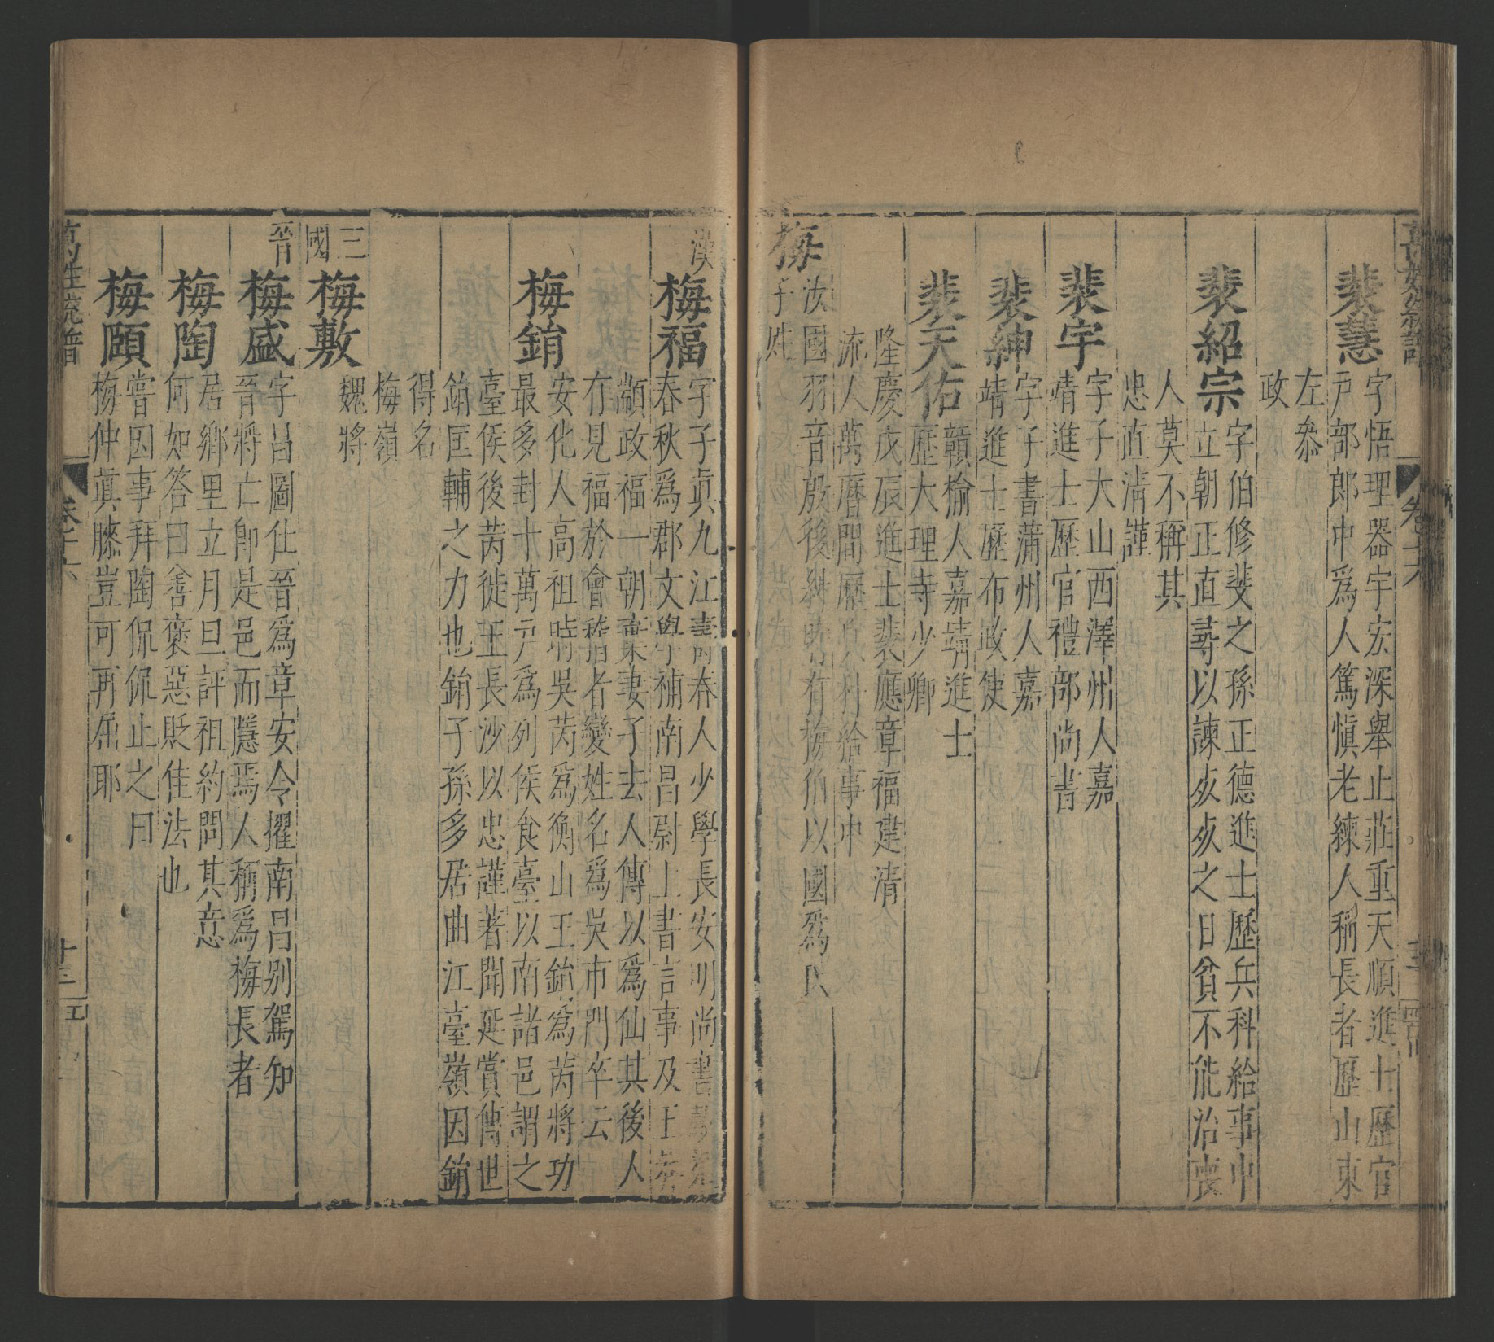 裴慧
字悟理器宇宏深舉止莊重天順進士歷官
戸部郎中爲人篤愼老練人稱長者歷山東
左叅
政
裴紹宗
字伯修斐之孫正德進士歷兵科給事中
立朝正直尋以諫死死之日貧不能治喪
人莫不稱其
忠直清謹
裴宇
字子大山西澤州人嘉
靖進士歷官禮部尚書
裴紳
字子書蒲州人嘉
靖進士歷布政使
裴天佑
贛榆人嘉靖進士
歷大理寺少卿
隆慶戊辰進士裴應章福建清
流人萬曆間歷 科給事中
梅
子姓
汝國羽音殷後 時有梅伯以國爲氏
漢
梅福
字子真九江壽春人少學長安明尚書
春秋爲郡文學補南昌尉上書言事及王
顓政福一朝棄妻子去人傳以爲仙其後人
有見福於會稽者變姓名爲吳市門卒云
梅鋗
安化人高祖時吳芮爲衡山王鋗爲芮將功
最多封十萬戸爲列侯食臺以南諸邑謂之
臺侯後芮徙王長沙以忠謹著聞延賞傳世
鋗匡輔之力也鋗子孫多居曲江臺嶺因鋗
得名
梅嶺
三
國
梅敷
魏將
晉
梅盛
字昌圖仕晉爲章安令擢南昌別駕知
晉將亡卽是邑而隱焉人稱爲梅長者
梅陶
居鄉里立月旦評祖約問其意
何如答曰善褒惡貶佳法也
梅頤
嘗因事拜陶侃侃止之曰
梅仲眞膝豈可再屈耶
萬姓統譜